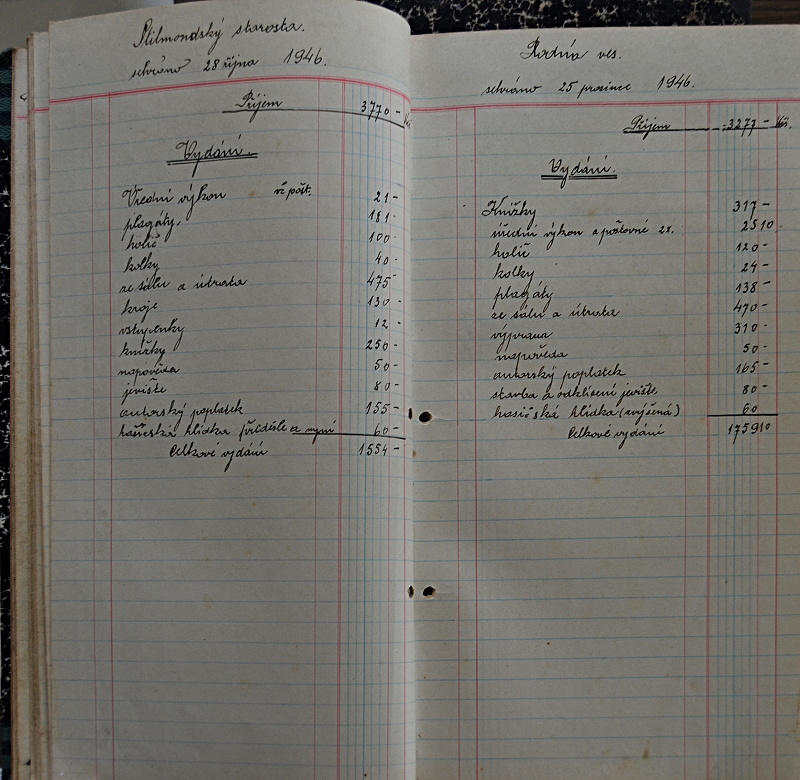 Stilmondský starosta.
sehráno 28 října 1946.
Příjem 3770 - Kčs.
Vydání.
Úřední výkon vč pošt. 21 -
plagáty. 181 -
holič 100 -
kolky 40 -
ze sálu a útrata 475 -
kroje 130 -
vstupenky 12 -
knížky 250 -
napověda 50 -
jeviště 80 -
autorský poplatek 155 -
hasičská hlídka (předešle a nyní 60 -
Celkové vydání 1554 -
Rodná ves.
sehráno 25 prosince 1946.
Příjem 3277 - Kčs.
Vydání.
Knížky 317 -
úřední výkon a poštovné 2x. 25 10
holič 120 -
kolky 24 -
plagáty 138 -
ze sálu a útrata 470 -
výprava 310 -
napověda 50 -
autorský poplatek 165 -
stavba a odklízení jeviště 80 -
hasičská hlídka (zvýšená) 60
Celkové vydání 1759 10